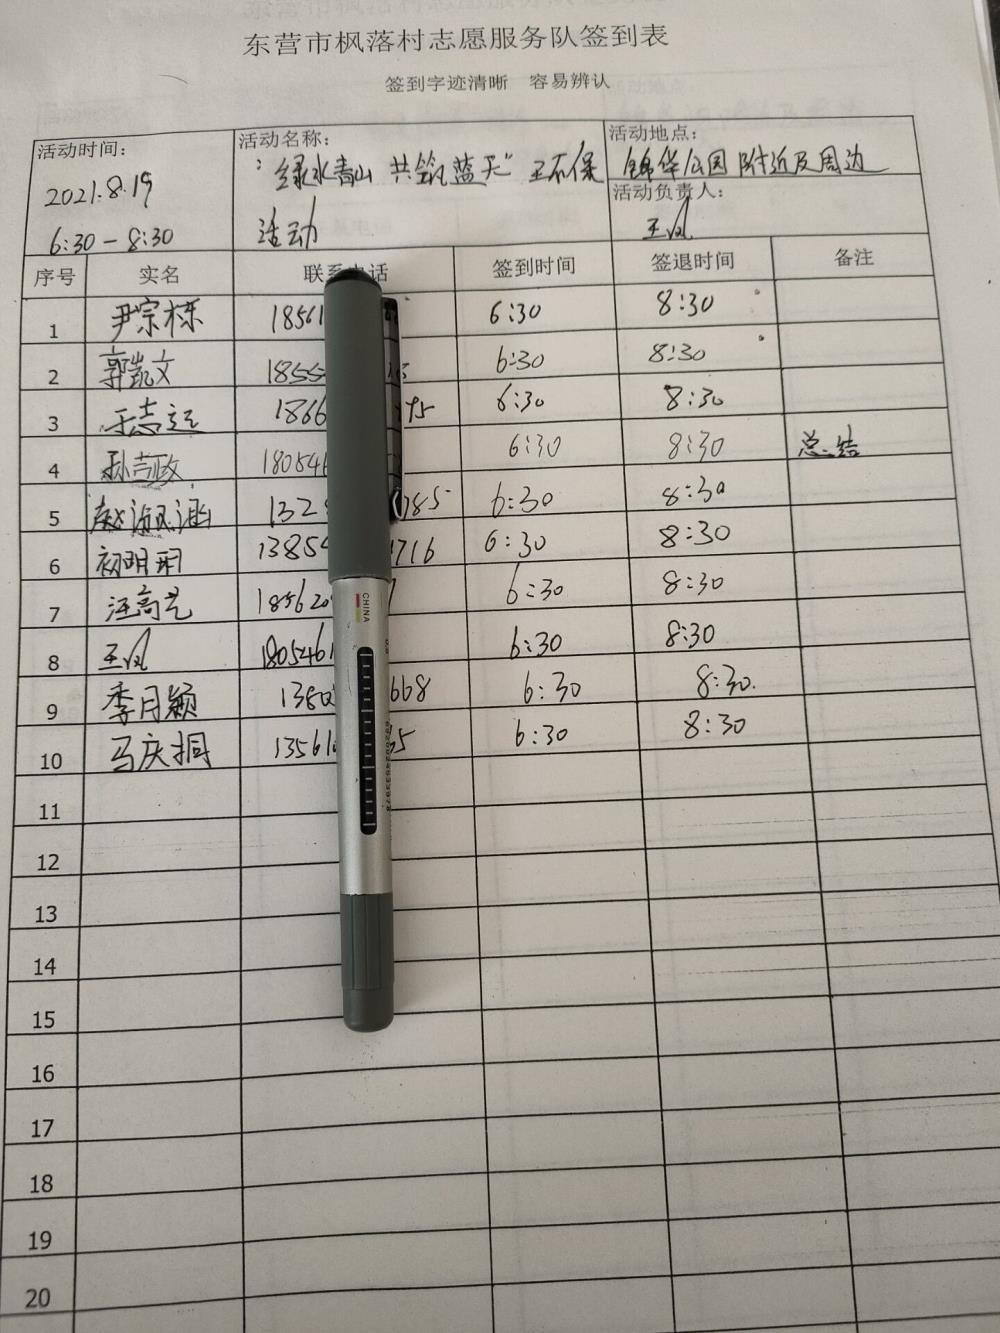 东营市枫落村志愿服务队签到表
签到字迹清晰 容易辨认
活动时间： 活动名称： 活动地点：
2021.8.19 "绿水青山 共筑蓝天" 环保 锦华公园附近及周边
6:30-8:30 活动 活动负责人：
王风
序号 实名 联系电话 签到时间 签退时间 备注
1 尹宗栋 18561 6:30 8:30
2 郭凯文 1855 6:30 8:30
3 于志远 1866 95 6:30 8:30
4 180546 6:30 8:30 总结
5 132 785 6:30 8:30
6 初明玥 13854 1716 6:30 8:30
7 汪高艺 185620 6:30 8:30
8 王风 1805461 6:30 8:30
9 季月颖 1380 668 6:30 8:30.
10 马庆桐 13561 55 6:30 8:30
11
12
13
14
15
16
17
18
19
20
CHINA